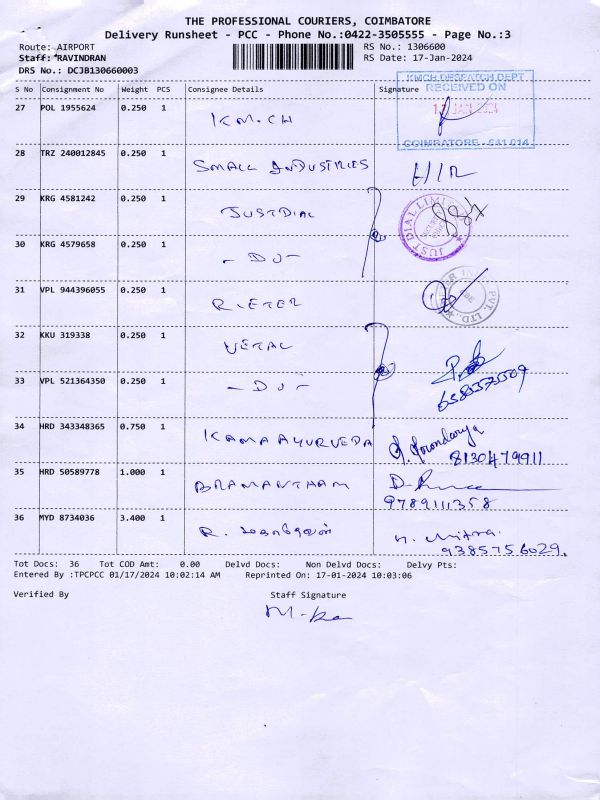 THE PROFESSIONAL COURIERS, COIMBATORE
Delivery Runsheet - PCC - Phone No.:0422-3505555 - Page No.:3
Route: AIRPORT RS No.: 1306600
Staff: *RAVINDRAN RS Date: 17-Jan-2024
DRS No.: DCJB130660003
KMCH DESPATCH DEPT
S No Consignment No Weight PCS Consignee Details Signature
RECEIVED ON
27 POL 1955624 0.250 1 KM.CH
JAN 2024
COIMBATORE - 641 014
28 TRZ 240012845 0.250 1 SMALL INDUSTRIES
29 KRG 4581242 0.250 1 JUSTDIAL
JUST DIAL LIMITED
30 KRG 4579658 0.250 1 - DO -
31 VPL 944396055 0.250 1 RIETER
PVT. LTD.
32 KKU 319338 0.250 1 VETAL
33 VPL 521364350 0.250 1 - DO -
34 HRD 343348365 0.750 1 KAMA AYURVEDA
8130479911
35 HRD 50589778 1.000 1 BRAMANTHAM
9789111358
36 MYD 8734036 3.400 1 R.
N. Mitra.
9385756029.
Tot Docs: 36 Tot COD Amt: 0.00 Delvd Docs: Non Delvd Docs: Delvy Pts:
Entered By :TPCPCC 01/17/2024 10:02:14 AM Reprinted On: 17-01-2024 10:03:06
Verified By Staff Signature